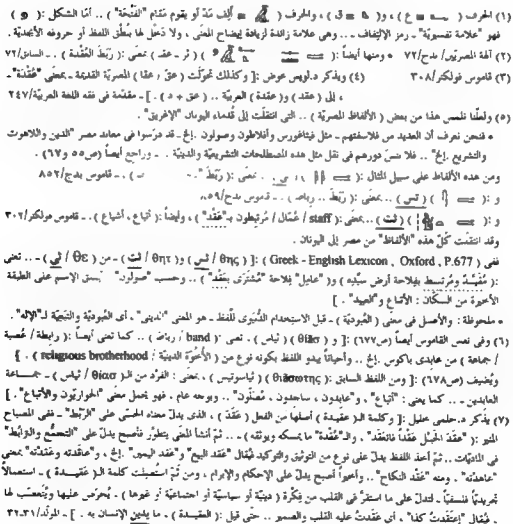 (١) الحرف ( = ع ) ، و( = ق ) ، والحرف ( = ألِف مَدّ أو يقوم مَقام "الفَتْحة" ) .. أمّا الشكل :( )
فهو "علامة تفسيريّة" ـ رمز الإلتِفاف ـ .. وهى علامة زائدة لزيادة إيضاح المعنَى ، ولا دَخْل لها بنُطق اللفظ أو حروفه الأبجديّة .
(٢) آلهة المصريّين/ بدج/٧٢ • ومنها أيضاً :( ) ( ثر ـ عقد ) بمعنَى :( رَبْط العُقْدة ) . ـ السابق/٧٢
(٣) قاموس فولكنر/٣٠٨ (٤) ويذكر د.لويس عوض :[ وكذلك تحوّلت ( عق / عقا ) المصريّة القديمة ـ بمعنَى "عُقْدة" ـ
، إلى ( عقد ) و( عقدة ) العربيّة .. ( عق + د ) . ] ـ مقدّمة فى فقه اللغة العربيّة/٢٤٧
(٥) ولعلّنا نلمس هذا من بعض ( الألفاظ المصريّة ) .. التى انتقلَت إلى قُدماء اليونان "الإغريق" .
• فنحن نعرف أن العديد من فلاسفتهم ـ مثل فيثاغورس وأفلاطون وصولون .إلخ ـ قد درَسوا فى معابد مصر "الدين واللاهوت
والتشريع .إلخ" .. فلا ننسَ دورهم فى نقل مثل هذه المصطلَحات التشريعيّة والدينيّة . ـ وراجع أيضاً (ص٥٥ و٦٧) .
ومن هذه الألفاظ على سبيل المثال :( ) .. بمعنَى :( رَبَطَ ) . ـ قاموس بدج/٨٥٢
و :( ) ( ثس ) .. بمعنَى :( رَبَطَ .. رباط ) . ـ قاموس بدج/٨٥٩
و :( ) ( ثت ) .. بمعنَى :( staff / عُمّال / مُرتبِطون بـ"عَقْد" ) ، وأيضاً :( أتباع ، أشياع ) . ـ قاموس فولكنر/٣٠٢
وقد انتقلَت كُلّ هذه "الألفاظ" من مصر إلى اليونان .
ففى ( Greek - English Lexicon , Oxford , P.677 ) :[ ( θης / ثس ) و( θητ / ثت ) ـ من ( θε / ثى ) ـ .. تعنى
الأخيرة من السكّان : الأتباع و"العبيد" . ]
• ملحوظة : والأصل فى معنَى ( العبوديّة ) ـ قبل الاستِخدام الدُنيَوى للّفظ ـ هو المعنَى "الدينى" ، أى العُبوديّة والتبعيّة لـ"الإله" .
(٦) وفى نفس القاموس أيضاً (ص٦٧٧) :[ و ( θίας / ثياس ) . تعنى "band / رباط ) .. كما تعنى أيضاً :( رابِطة / عُصبة
/ جماعة ) من عابدى باكوس .إلخ .. وأحياناً يبدو اللفظ بكونه نوع من ( الأخُوّة الدينيّة / religious brotherhood ) . }
العابدين .. كما يعنى : "أتباع" ، و"عابدون ، ساجدون ، مُصَلّون" .. وبوجه عام ، فهو يحمل معنَى "الحواريّون والأتباع" . ]
(٧) يذكر د.حلمى خليل :[ وكلمة الـ( عقيدة ) أصلها من الفعل ( عَقَدَ ) ، الذى يدلّ معناه الحِسّى على "الرَبْط" ـ ففى المصباح
المنير :( "عقدَ الحَبْل عَقْداً فانعَقَد" ، والـ"عُقْدة" ما يمسكه ويوثقه ) ـ .. ثمّ أنشأ المعنَى يتطوّر فأصبح يدلّ على "التجمُّع والترابُط"
فى المادّيات .. ثمّ أخذ اللفظ يدلّ على نوع من التوثيق والتوكيد فيُقال "عقد البيع" و"عقد اليمين" .إلخ ، و"عاقَدتُه وعَقَدتُه" بمعنَى
"عاهدتُه" ، ومنه "عَقْد النكاح" .. وأخيراً أصبح يدلّ على الإحكام والإبرام ، ومن ثَمّ استُعمِلت كلمة الـ( عقيـــدة ) ـ استعمالاً
تجريديّاً فلسفيّاً ـ لتدلّ على ما استقرّ فى القلب من فِكْرة ( دينيّة أو سياسيّة أو اجتماعيّة أو غيرها ) ـ يُحرَص عليها ويُتعَصَّب لها
، فيُقال "اعتقدتُ كذا" ، أى عقدتُ عليه القلب والضمير .. حتّى قيل :( العقيـدة ) ـ ما يدين الإنسان به . ] ـ المولّد/٣١ـ٣٢